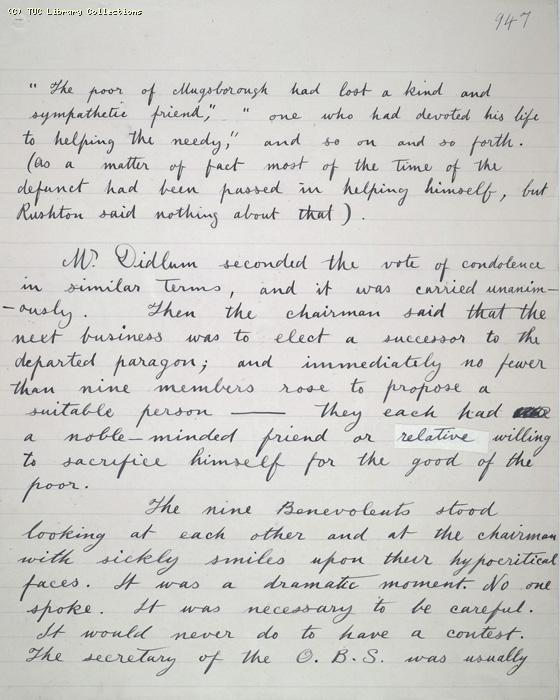 (C) TUC Library Collections
947
" The poor of Mugsborough had lost a kind and
sympathetic friend", " one who had devoted his life
to helping the needy," and so on and so forth.
(As a matter of fact most of the time of the
defunct had been passed in helping himself, but
Rushton said nothing about that).
Mr Didlum seconded the vote of condolence
in similar terms, and it was carried unanim-
-ously. Then the chairman said that the
next business was to elect a successor to the
departed paragon; and immediately no fewer
than nine members rose to propose a
suitable person — they each had
a noble-minded friend or relative willing
to sacrifice himself for the good of the
poor.
The nine Benevolents stood
looking at each other and at the chairman
with sickly smiles upon their hypocritical
faces. It was a dramatic moment. No one
spoke. It was necessary to be careful.
It would never do to have a contest.
The secretary of the O. B. S. was usually